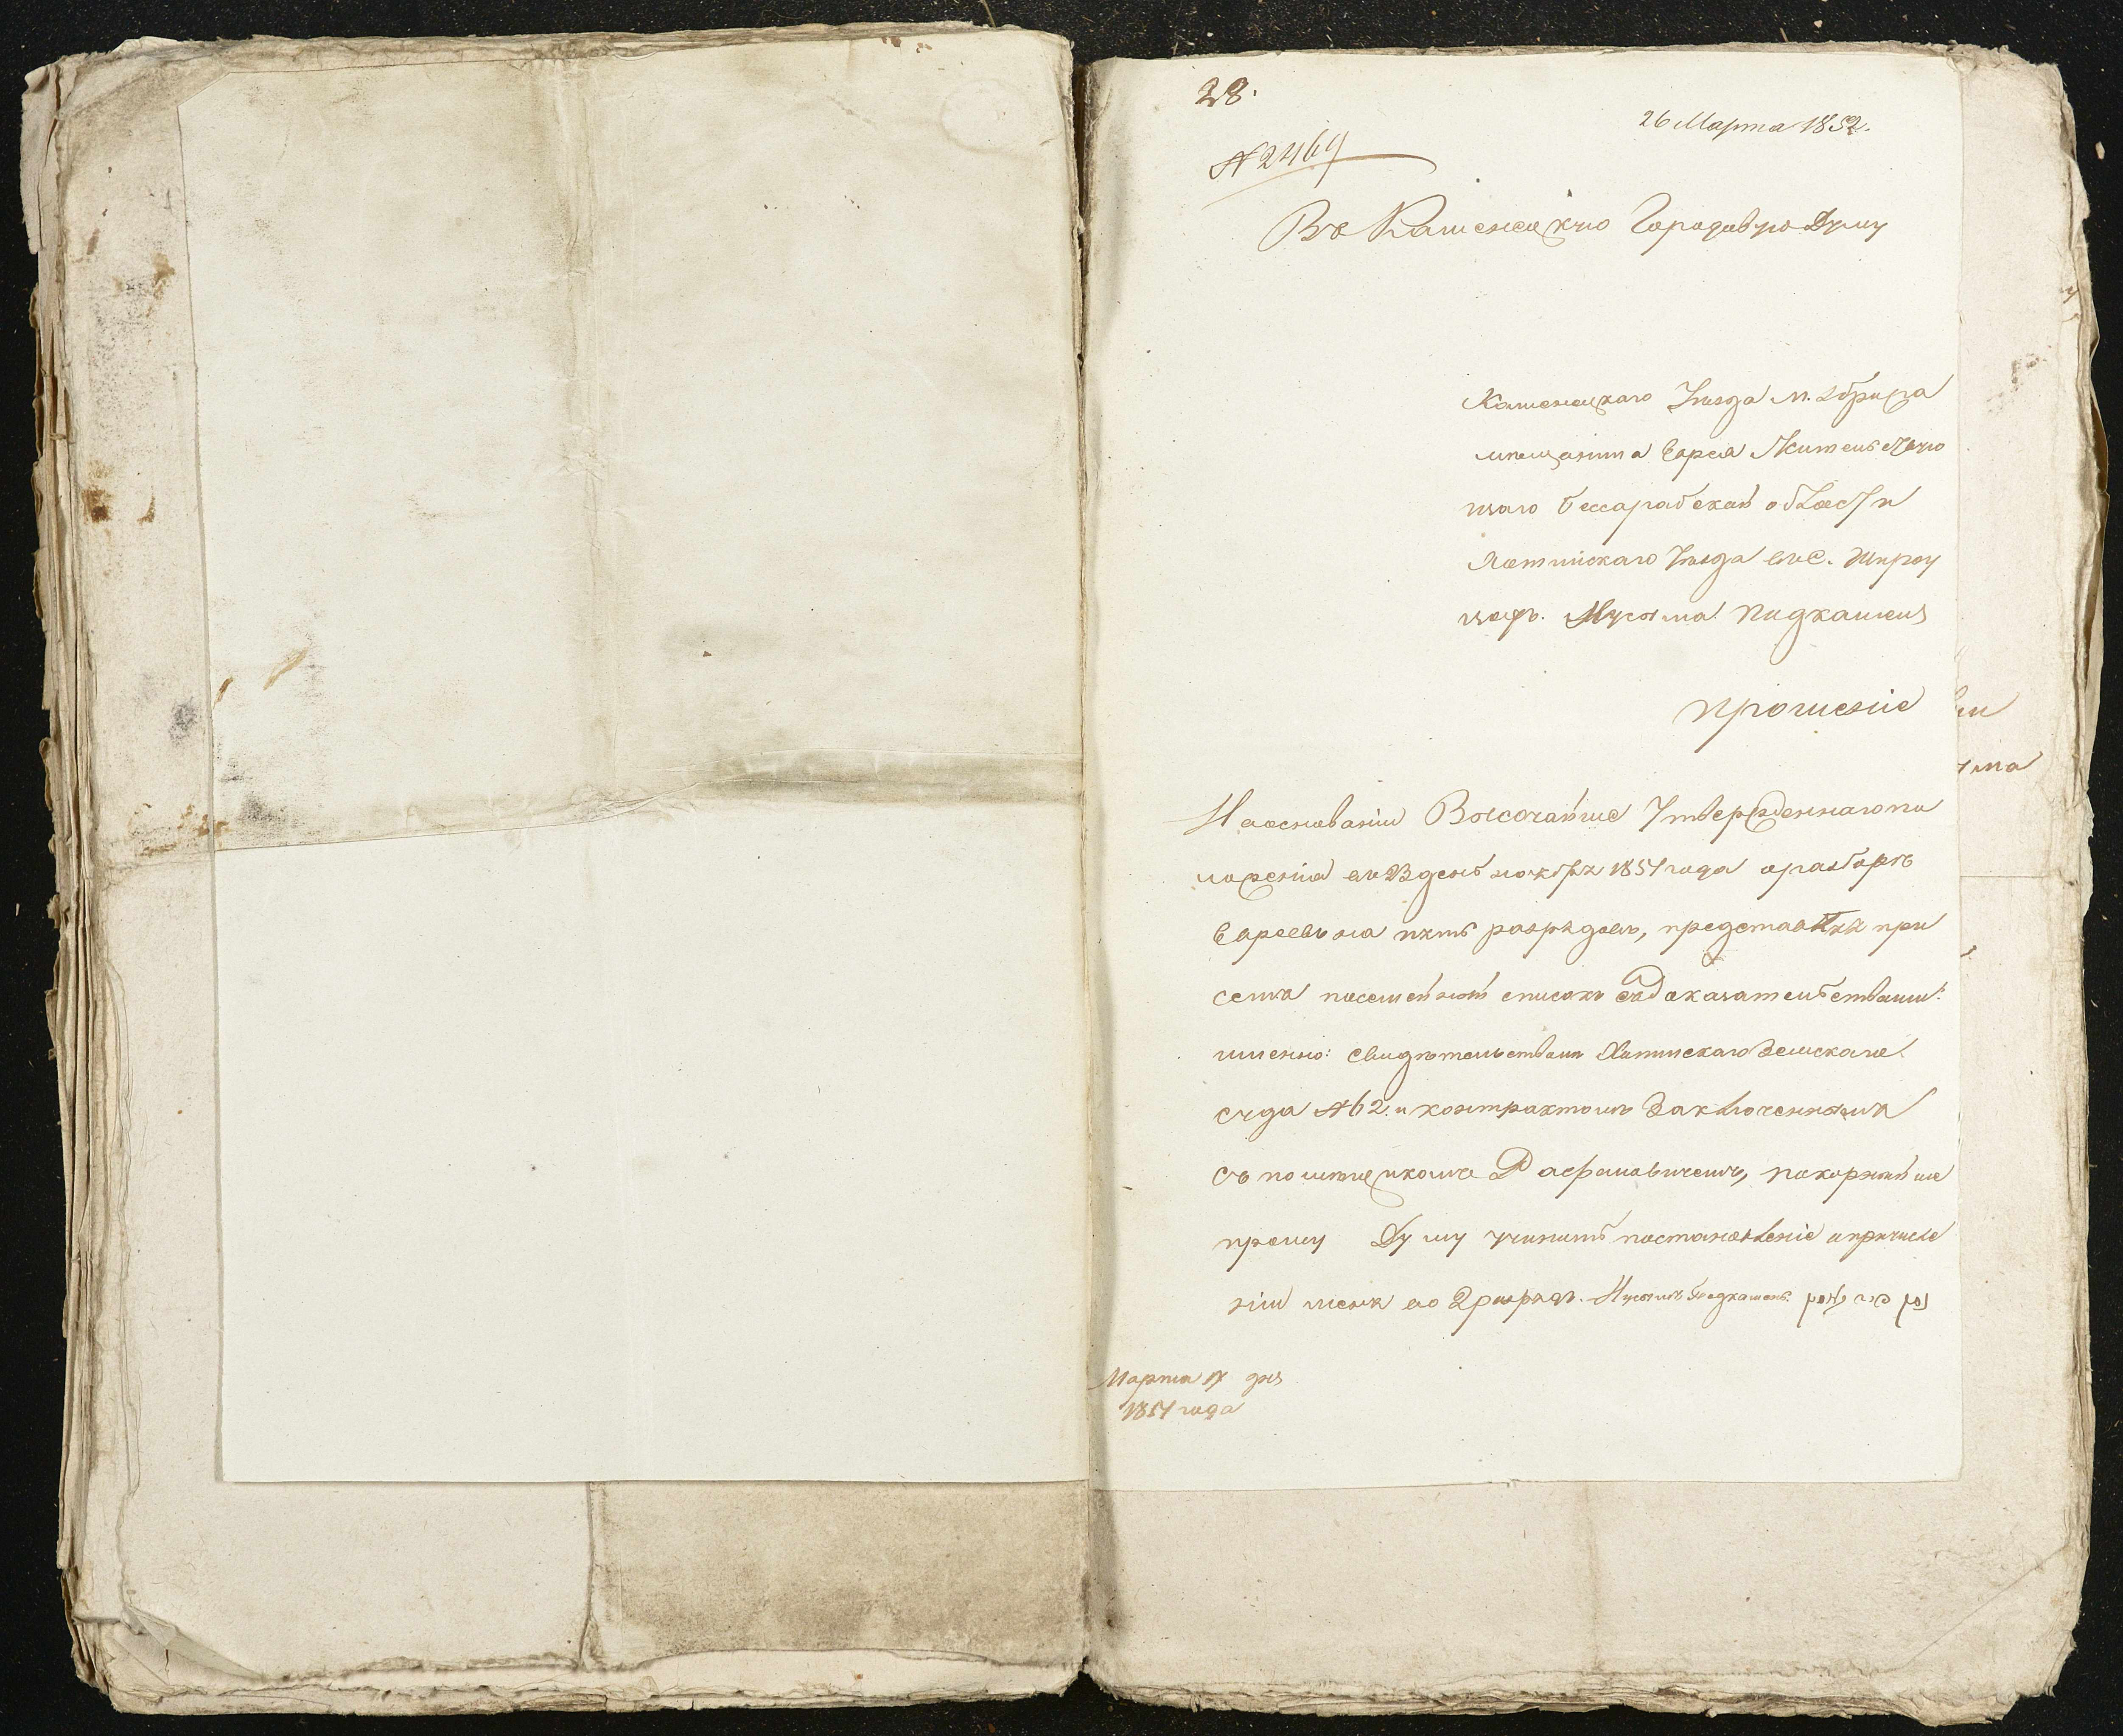 28.
26 Марта 1852.
№ 2469
Въ Каменецкую Городовую Думу
Каменецкаго Уѣзда м. Збрижа
мѣщанина Еврея Жительствую
щаго Бессарабской области
Хотинскаго Уѣзда въ с. Широу
цахъ. Нусыма Подкамень
Прошеніе
На основаніи Высочайше Утвержденнаго по
ложенія въ 23 день ноября 1851 года о разборѣ
Евреевъ на пять разрядовъ, представляя при
семъ посемейный списокъ съ доказательствами:
именно: свидѣтельствомъ Хотинскаго Земскаго
суда № 62. и контрактомъ Заключеннымъ
съ помѣщикомъ, покорнѣйше
прошу Думу учинить постановленіе о причисле
ніи меня во 2 разрядъ. Нусымъ Подкамень.
Марта 17 дня
1851 года